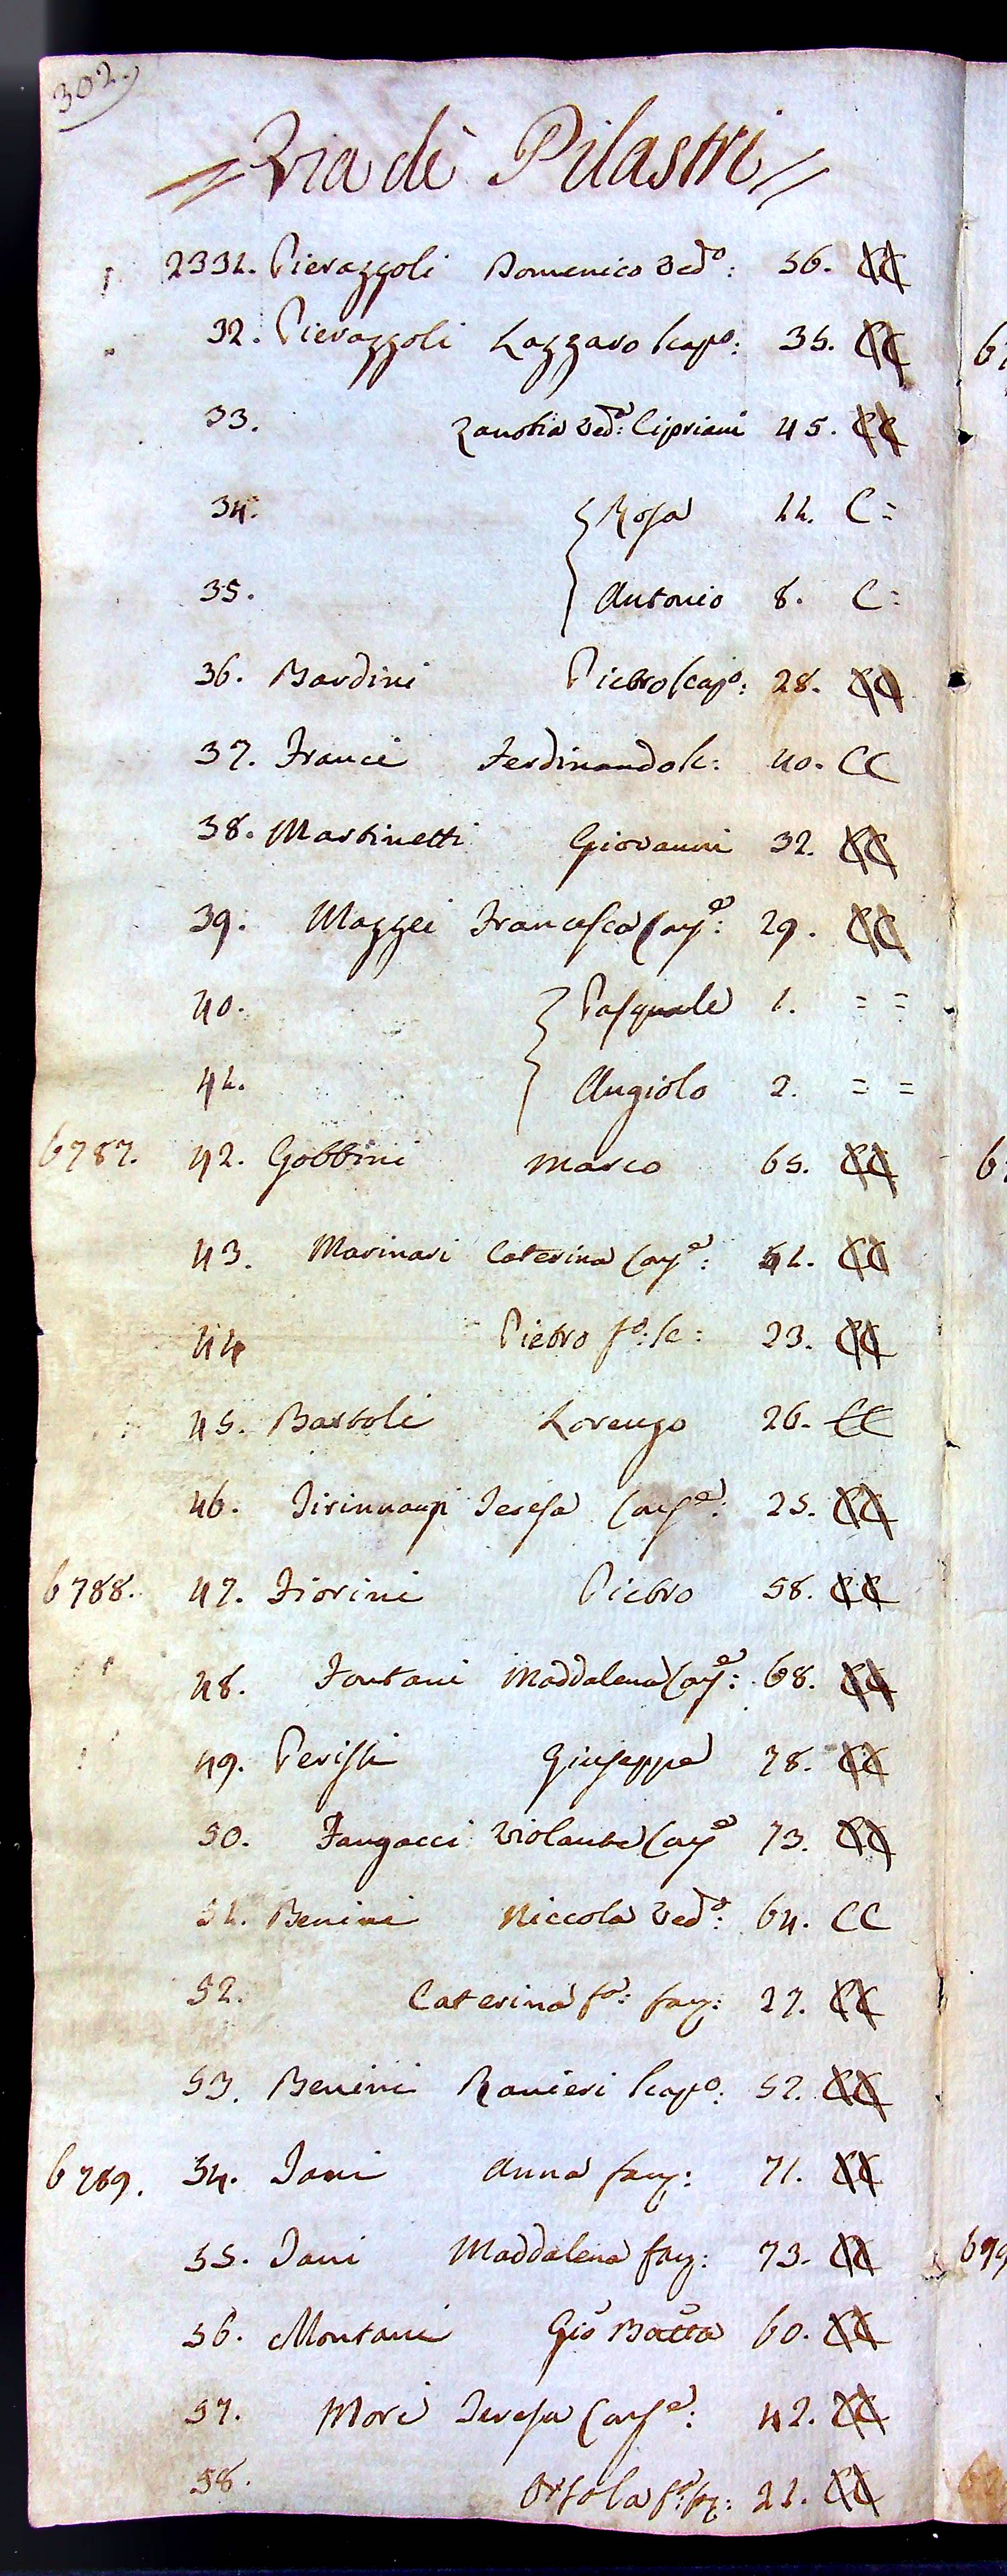 302.
Via de Pilastri
2331. Pierazzoli Domenico Ved.º: 56. CC
32. Pierazzoli Lazzaro scapº: 35. CC
33. Zanobia Ved.ª: Cipriani 45. CC
34. Rosa 11. C=
35. Antonio 8. C=
36. Bardini Pietro scapº: 28. CC
37. Franci Ferdinando sc: 40. CC
38. Martinetti Giovanni 32. CC
39. Mazzei Francesca Conjᵉ: 29. CC
40. Pasquale 1. = =
41. Angiolo 2. = =
6787. 42. Gobbini Marco 65. CC
43. Marinari Caterina Conjᵉ: 51. CC
44 Pietro fº: sc: 23. CC
45. Bartoli Lorenzo 26. CC
46. Tirinnanzi Teresa Conjᵉ: 25. CC
6788. 47. Fiorini Pietro 58. CC
48. Fontani Maddalena Conjᵉ: 68. CC
49. Perissi Giuseppe 78. CC
50. Fangacci Violante Conjᵉ 73. CC
51. Benini Niccola Ved.º: 64. CC
52. Caterina fª: fan: 27. CC
53. Benini Ranieri scapº: 52. CC
6789. 54. Tani Anna fan: 71. CC
55. Tani Maddalena fan: 73. CC
56. Montani Gio Batta 60. CC
57. Mori Teresa Conjᵉ: 42. CC
58. Orsola fª: fan: 21. CC